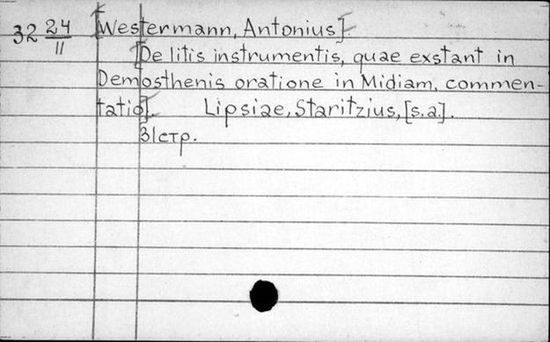 32 24/11 [Westermann, Antonius]
[De litis instrumentis, quae exstant in
Demosthenis oratione in Midiam, commen-
tatio]. Lipsiae, Staritzius, [s.a.].
31 стр.